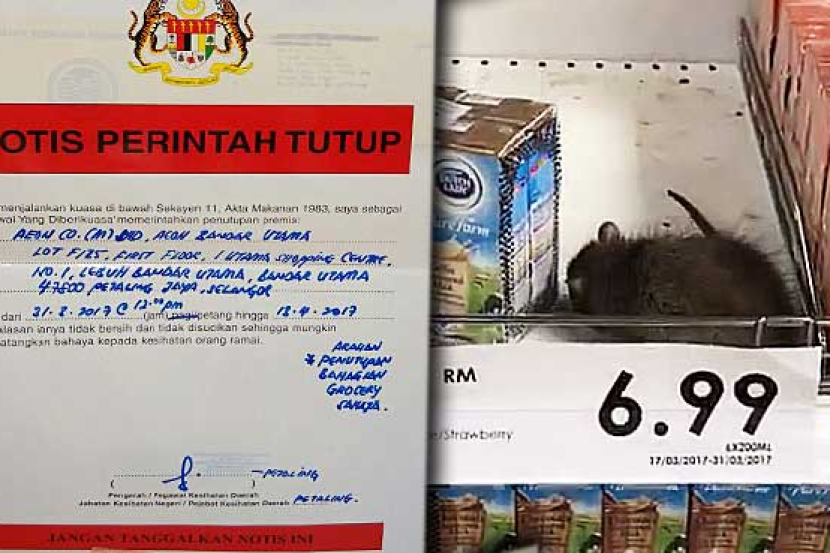 OTIS PERINTAH TUTUP
menjalankan kuasa di bawah Seksyen 11, Akta Makanan 1983, saya sebagai
wai Yang Diberikuasa memerintahkan penutupan premis:
AEON CO. (M) BHD, AEON BANDAR UTAMA
LOT F125, FIRST FLOOR, 1 UTAMA SHOPPING CENTRE,
NO. 1, LEBUH BANDAR UTAMA, BANDAR UTAMA
47800 PETALING JAYA, SELANGOR
dari 31-3-2017 @ 12.00 pm (jam) pagi/petang hingga 13-4-2017
alasan ianya tidak bersih dan tidak disucikan sehingga mungkin
atangkan bahaya kepada kesihatan orang ramai.
ARAHAN
* PENUTUPAN
BAHAGIAN
GROCERY
SAHAJA.
PETALING
Pengarah / Pegawai Kesihatan Daerah
Jabatan Kesihatan Negeri / Pejabat Kesihatan Daerah PETALING.
JANGAN TANGGALKAN NOTIS INI
DUTCH LADY
Purefarm
RM 6.99
e/Strawberry
6X200ML
17/03/2017-31/03/2017